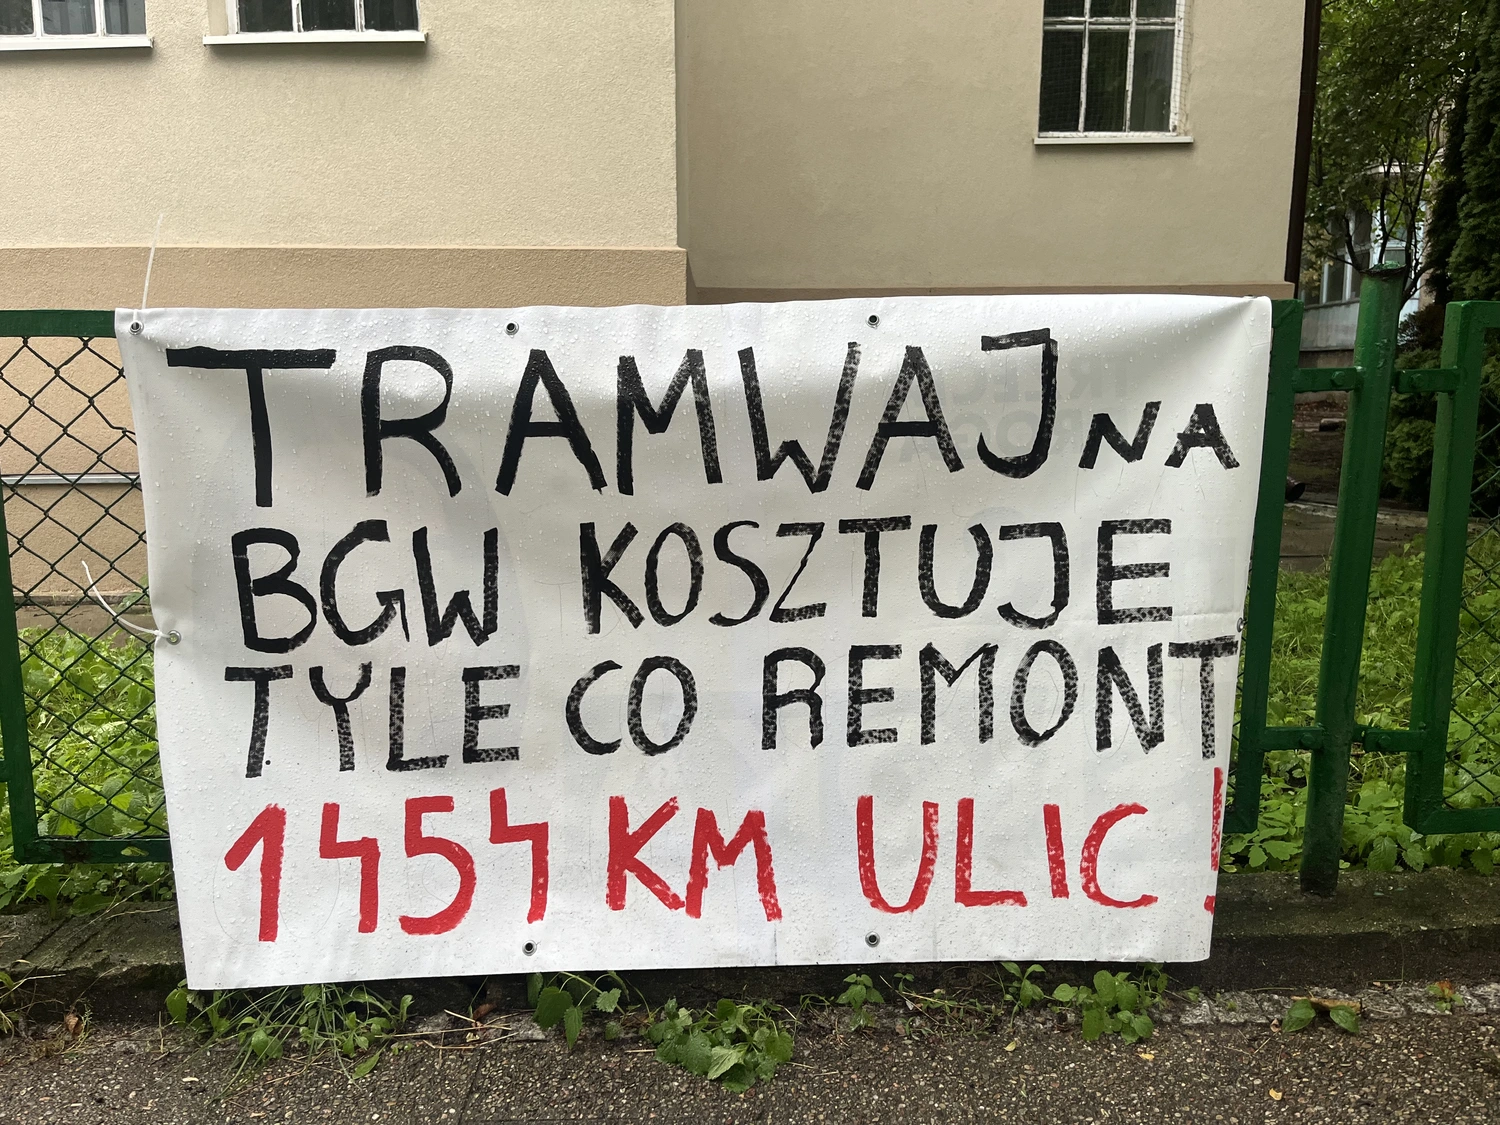 TRAMWAJ NA
BGW KOSZTUJE
TYLE CO REMONT
1454 KM ULIC!